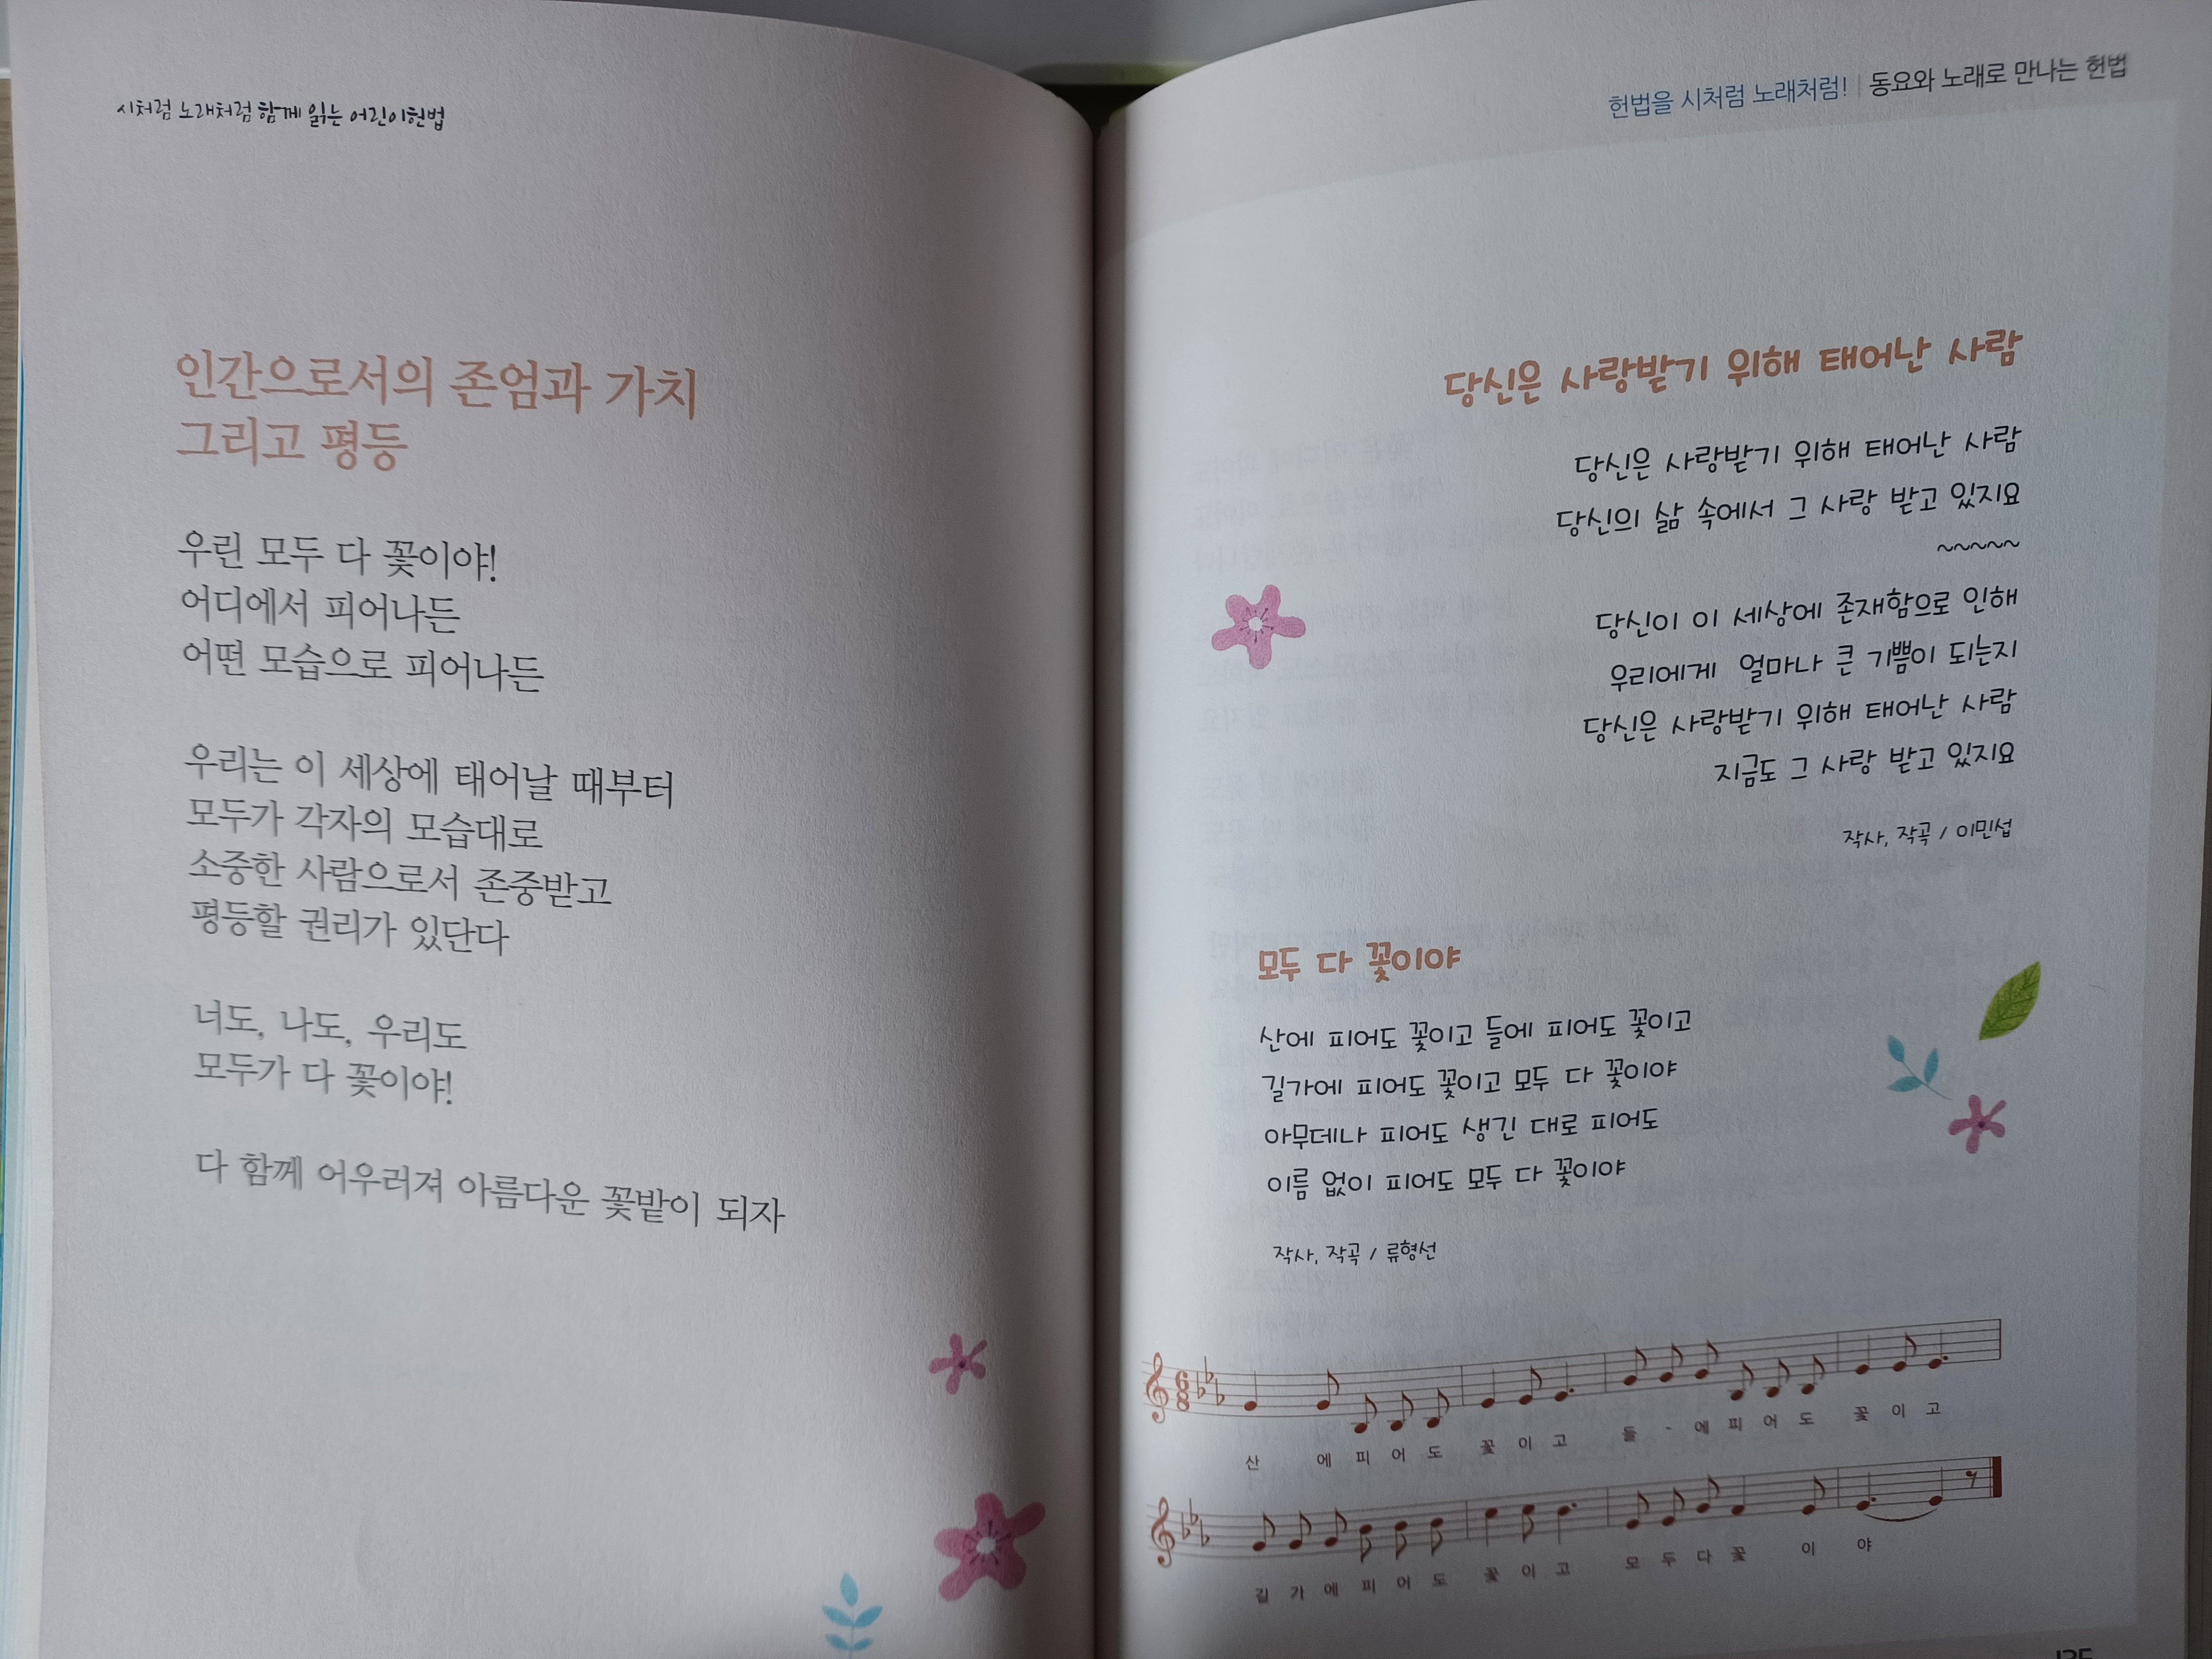 시처럼 노래처럼 함께 읽는 어린이헌법
인간으로서의 존엄과 가치
그리고 평등
우린 모두 다 꽃이야!
어디에서 피어나든
어떤 모습으로 피어나든
우리는 이 세상에 태어날 때부터
모두가 각자의 모습대로
소중한 사람으로서 존중받고
평등할 권리가 있단다
너도, 나도, 우리도
모두가 다 꽃이야!
다 함께 어우러져 아름다운 꽃밭이 되자
헌법을 시처럼 노래처럼! | 동요와 노래로 만나는 헌법
당신은 사랑받기 위해 태어난 사람
당신은 사랑받기 위해 태어난 사람
당신의 삶 속에서 그 사랑 받고 있지요
~~~~~
당신이 이 세상에 존재함으로 인해
우리에게 얼마나 큰 기쁨이 되는지
당신은 사랑받기 위해 태어난 사람
지금도 그 사랑 받고 있지요
작사, 작곡 / 이민섭
모두 다 꽃이야
산에 피어도 꽃이고 들에 피어도 꽃이고
길가에 피어도 꽃이고 모두 다 꽃이야
아무데나 피어도 생긴 대로 피어도
이름 없이 피어도 모두 다 꽃이야
작사, 작곡 / 류형선
6
8
산 에 피 어 도 꽃 이 고 들 - 에 피 어 도 꽃 이 고
길 가 에 피 어 도 꽃 이 고 모 두 다 꽃 이 야